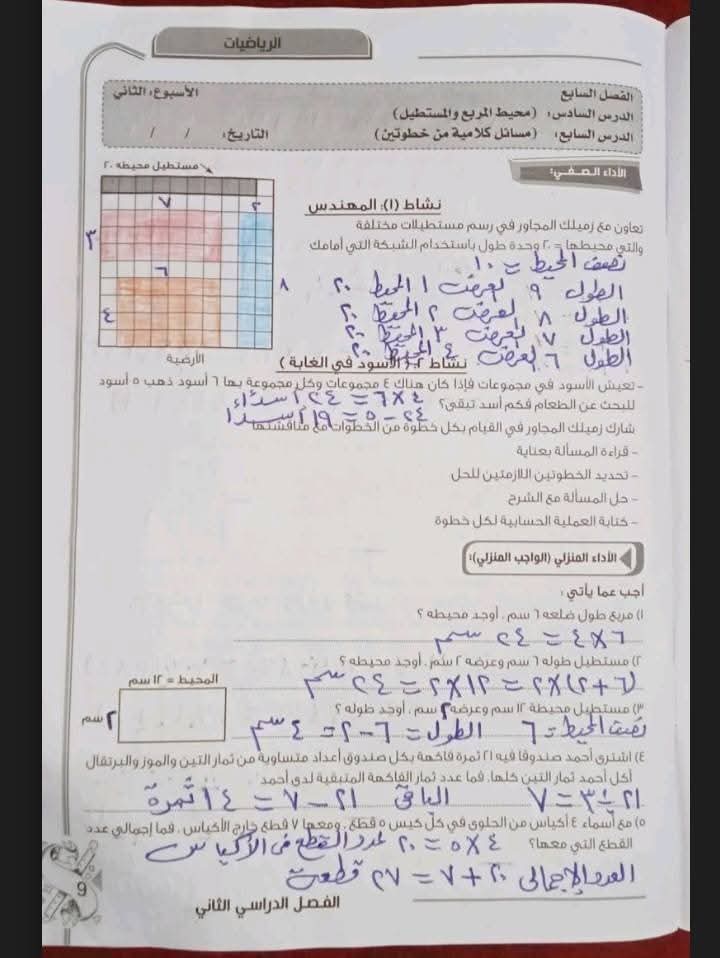 الرياضيات
الفصل السابع
الأسبوع: الثاني
الدرس السادس: (محيط المربع والمستطيل)
الدرس السابع: (مسائل كلامية من خطوتين)
التاريخ: / /
الأداء الصفي:
مستطيل محيطه ٢٠
٧
٢
٣
٦
٤
٨
الأرضية
نشاط (١): المهندس
تعاون مع زميلك المجاور في رسم مستطيلات مختلفة
والتي محيطها = ٢٠ وحدة طول باستخدام الشبكة التي أمامك
نصف المحيط = ١٠
الطول ٩ العرض ١ المحيط ٢٠
الطول ٨ العرض ٢ المحيط ٢٠
الطول ٧ العرض ٣ المحيط ٢٠
الطول ٦ العرض ٤ المحيط ٢٠
نشاط ٢: (الأسود في الغابة)
- تعيش الأسود في مجموعات فإذا كان هناك ٤ مجموعات وكل مجموعة بها ٦ أسود ذهب ٥ أسود
للبحث عن الطعام فكم أسد تبقى؟ ٤ × ٦ = ٢٤ أسداً
٢٤ - ٥ = ١٩ أسدا
شارك زميلك المجاور في القيام بكل خطوة من الخطوات مع مناقشتها
- قراءة المسألة بعناية
- تحديد الخطوتين اللازمتين للحل
- حل المسألة مع الشرح
- كتابة العملية الحسابية لكل خطوة
الأداء المنزلي (الواجب المنزلي):
أجب عما يأتي:
١) مربع طول ضلعه ٦ سم، أوجد محيطه ؟
٦ × ٤ = ٢٤ سم
٢) مستطيل طوله ٦ سم وعرضه ٢ سم، أوجد محيطه ؟
(٦+٢) × ٢ = ١٢ × ٢ = ٢٤ سم
المحيط = ١٢ سم
٢ سم
٣) مستطيل محيطة ١٢ سم وعرضه ٢ سم، أوجد طوله ؟
نصف المحيط = ٦ الطول = ٦ - ٢ = ٤ سم
٤) اشترى أحمد صندوقا فيه ٢١ ثمرة فاكهة بكل صندوق أعداد متساوية من ثمار التين والموز والبرتقال
أكل أحمد ثمار التين كلها، فما عدد ثمار الفاكهة المتبقية لدى أحمد
٢١ ÷ ٣ = ٧ الباقى ٢١ - ٧ = ١٤ ثمرة
٥) مع أسماء ٤ أكياس من الحلوى في كل كيس ٥ قطع، ومعها ٧ قطع خارج الأكياس، فما إجمالي عدد
القطع التي معها؟ ٤ × ٥ = ٢٠ عدد القطع فى الأكياس
العدد الإجمالى ٢٠ + ٧ = ٢٧ قطعة
الفصل الدراسي الثاني
9